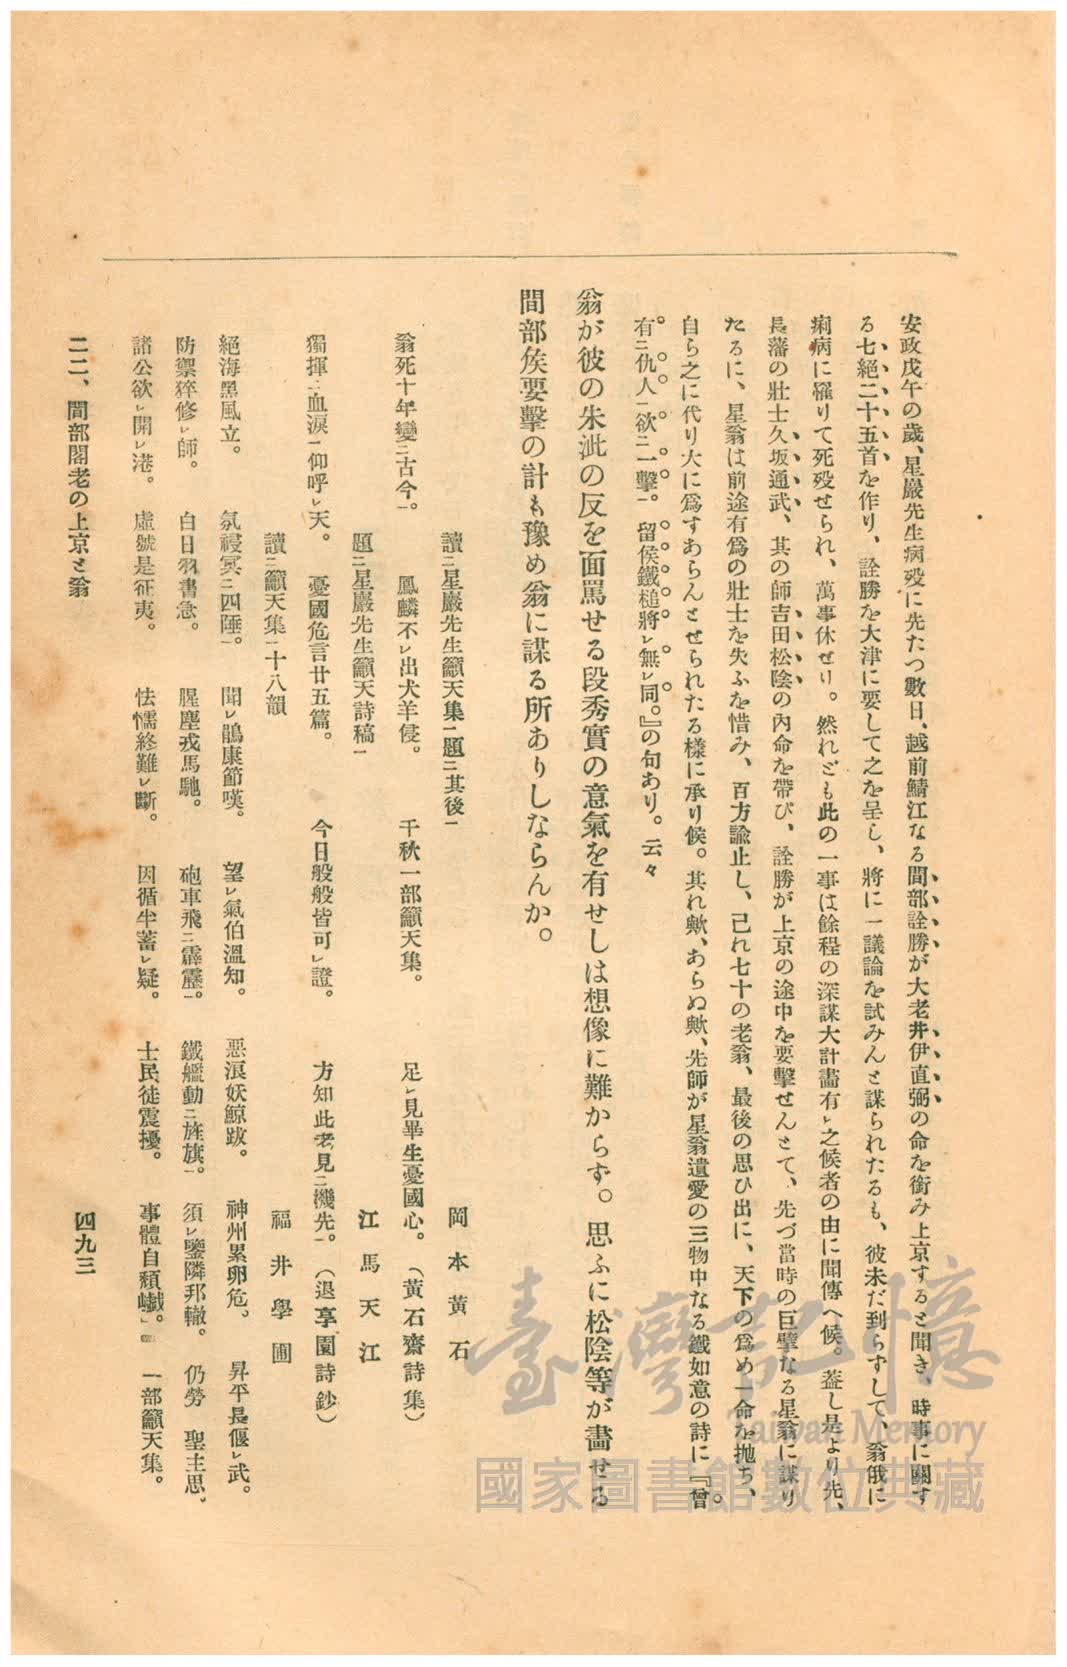 安政戊午の歲、星巖先生病歿に先たつ數日、越前鯖江なる間部詮勝が大老井伊直弼の命を銜み上京すると聞き、時事に關す
る七絕二十五首を作り、詮勝を大津に要して之を呈し、將に一議論を試みんと謀られたるも、彼未だ到らずして、翁俄に
痢病に罹りて死歿せられ、萬事休せり。然れども此の一事は餘程の深謀大計畵有レ之候者の由に聞傳へ候。蓋し是より先、
長藩の壯士久坂通武、其の師吉田松陰の內命を帶び、詮勝が上京の途中を要擊せんとて、先づ當時の巨擘なる星翁に謀り
たるに、星翁は前途有爲の壯士を失ふを惜み、百方諭止し、己れ七十の老翁、最後の思ひ出に、天下の爲め一命を抛ち、
自ら之に代り大に爲すあらんとせられたる樣に承り候。其れ歟、あらぬ歟、先師が星翁遺愛の三物中なる鐵如意の詩に『曾
有二仇人一欲二一擊一。留侯鐵槌將レ無レ同。』の句あり。云々
翁が彼の朱泚の反を面罵せる段秀實の意氣を有せしは想像に難からず。思ふに松陰等が畵せる
間部侯要擊の計も豫め翁に謀る所ありしならんか。
讀二星巖先生籲天集一題二其後一　岡本黃石
翁死十年變二古今一。　鳳麟不レ出犬羊侵。　千秋一部籲天集。　足レ見畢生憂國心。（黃石齋詩集）
題二星巖先生籲天詩稿一　江馬天江
獨揮二血淚一仰呼レ天。　憂國危言廿五篇。　今日般般皆可レ證。　方知此老見二機先一。（退享園詩鈔）
讀二籲天集一十八韻　福井學圃
絕海黑風立。　氛祲冥二四陲一。　聞レ鵑康節嘆。　望レ氣伯溫知。　惡浪妖鯨跋。　神州累卵危。　昇平長偃レ武。
防禦猝修レ師。　白日羽書急。　腥塵戎馬馳。　砲車飛二霹靂一。　鐵艦動二旌旗一。　須レ鑒隣邦轍。　仍勞　聖主思。
諸公欲レ開レ港。　虛號是征夷。　怯懦終難レ斷。　因循半蓄レ疑。　士民徒震擾。　事體自頹。　一部籲天集。
二二、間部閣老の上京と翁
四九三
臺灣記憶
Taiwan Memory
國家圖書館數位典藏